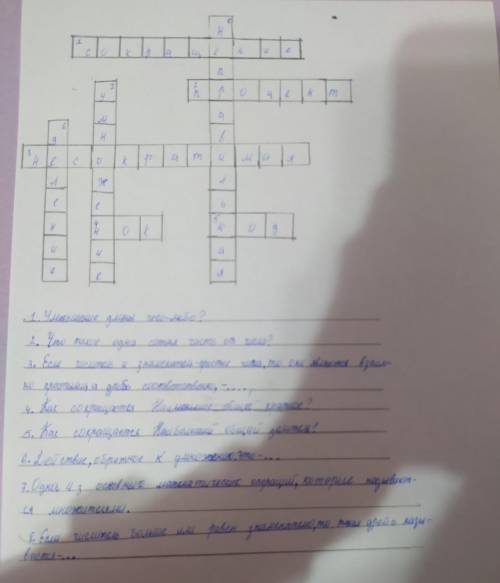 1 сокращение
2 процент
3 несократимая
4 нок
5 нод
6 деление
7 умножение
8 неправильная
1. Уменьшение длины чего-либо?
2. Что такое одна сотая часть от числа?
3. Если числитель и знаменатель простые числа, то они являются взаим-
но простыми, а дробь соответственно, -....
4. Как сокращается Наименьшее общее кратное?
5. Как сокращается Наибольший общий делитель?
6. Действие, обратное к умножению, это-...
7. Одна из основных математических операций, которые называют-
ся множителями.
8. Если числитель больше или равен знаменателю, то такая дробь назы-
вается-...